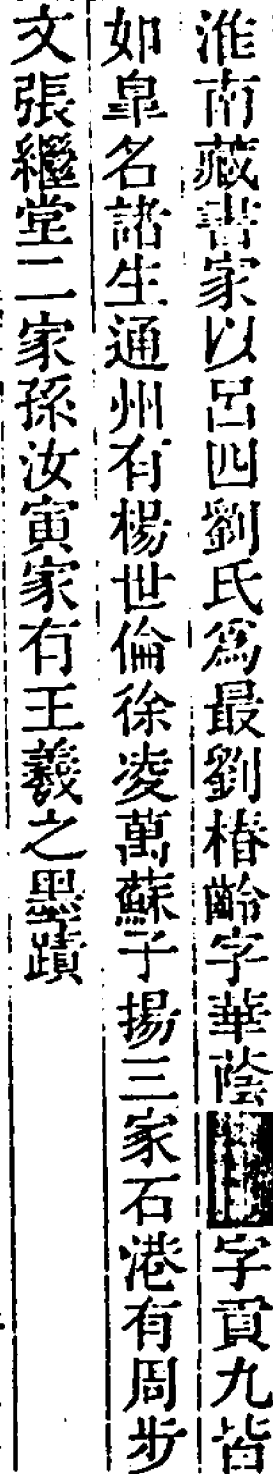 淮南藏書家以呂四劉氏爲最劉椿齡字華蔭字貢九皆
如臯名諸生通州有楊世倫徐凌萬蘇子揚三家石港有周步
文張繼堂二家孫汝寅家有王羲之墨蹟